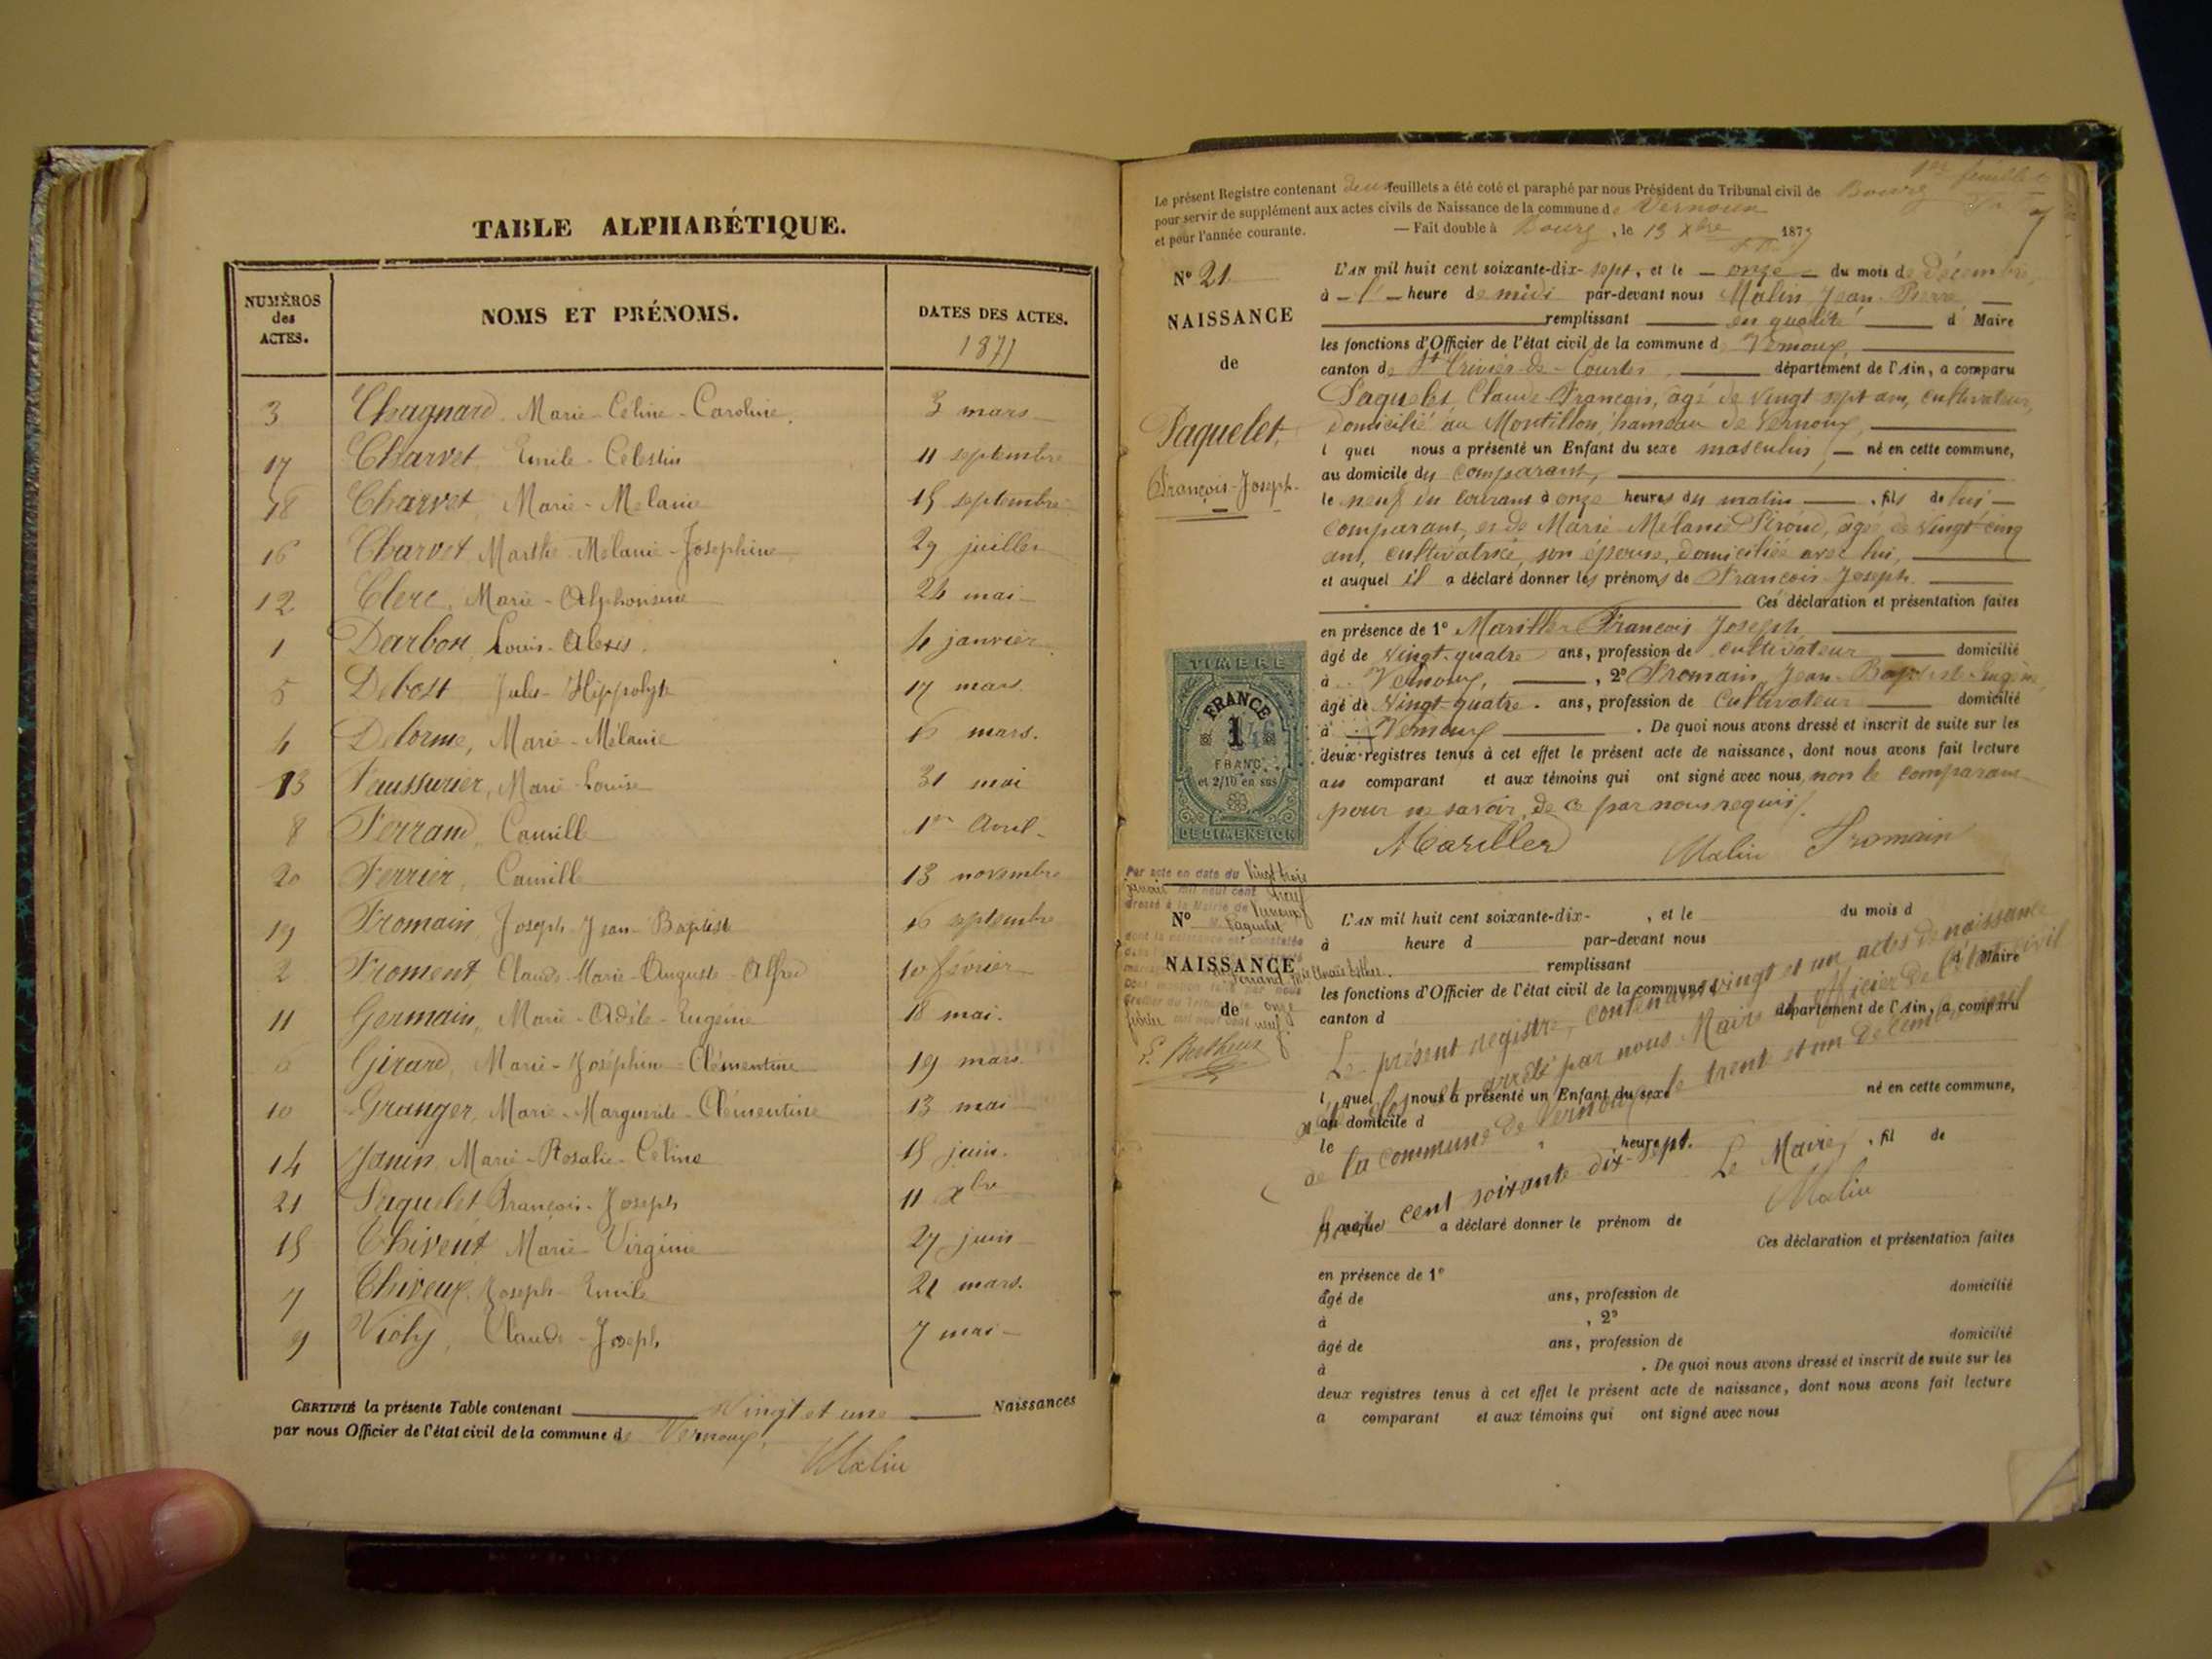 TABLE ALPHABÉTIQUE.
NUMÉROS des ACTES.
NOMS ET PRÉNOMS.
DATES DES ACTES.
1877
3 Chagnard Marie-Céline-Caroline. 3 mars
17 Charvet Emile-Célestin 11 septembre
18 Charvet Marie-Melanie 15 septembre
16 Charvet Marthe-Mélanie-Joséphine 29 juillet
12 Clerc, Marie-Alphonsine 26 mai
1 Darbon Louis-Alexis. 4 janvier
5 Debost Jules-Hippolyte 17 mars.
4 Delorme, Marie-Mélanie 16 mars.
13 Faussurier, Marie-Louise 31 mai
8 Ferrand, Camille 1er Avril
20 Ferrier, Camille 13 novembre
19 Fromain, Joseph-Jean-Baptiste 16 septembre
2 Froment Claude-Marie-Auguste-Alfred 10 février
11 Germain, Marie-Adèle-Eugénie 18 mai.
6 Girard, Marie-Joséphine-Clémentine 19 mars
10 Granger, Marie-Marguerite-Clémentine 13 mai
14 Janin, Marie-Rosalie-Céline 15 juin.
21 Paquelet François-Joseph 11 Xbre
15 Thivent Marie-Virginie 27 juin
7 Thiveux Joseph-Emile 21 mars.
9 Violy, Claude-Joseph 7 mai
CERTIFIÉ la présente Table contenant Vingt et une Naissances
par nous Officier de l'état civil de la commune de Vernoux,
Malin
1er feuillet
Le présent Registre contenant deux feuillets a été coté et paraphé par nous Président du Tribunal civil de Bourg
pour servir de supplément aux actes civils de Naissance de la commune de Vernoux
et pour l'année courante. — Fait double à Bourg, le 13 Xbre 1877
N° 21
NAISSANCE
de
Paquelet,
François-Joseph.
L'AN mil huit cent soixante-dix-sept, et le onze du mois de décembre,
à l' heure de midi par-devant nous Malin Jean-Pierre
remplissant en qualité d Maire
les fonctions d'Officier de l'état civil de la commune d Vernoux
canton de St Trivier-de-Courtes, département de l'Ain, a comparu
Paquelet Claude-François, âgé de vingt sept ans, cultivateur,
domicilié au Montillon, hameau de Vernoux,
l quel nous a présenté un Enfant du sexe masculin, né en cette commune,
au domicile du comparant,
le neuf du courant à onze heures du matin, fils de lui
comparant, et de Marie Mélanie Piroud, âgée de vingt-cinq
ans, cultivatrice, son épouse, domiciliée avec lui,
et auquel il a déclaré donner les prénoms de François Joseph.
Ces déclaration et présentation faites
en présence de 1° Mariller François Joseph,
âgé de vingt-quatre ans, profession de cultivateur domicilié
à Vernoux, , 2° Fromain, Jean-Baptiste-Eugène,
âgé de vingt-quatre. ans, profession de Cultivateur domicilié
à Vernoux . De quoi nous avons dressé et inscrit de suite sur les
deux registres tenus à cet effet le présent acte de naissance, dont nous avons fait lecture
au comparant et aux témoins qui ont signé avec nous, non le comparant
pour ne savoir, de ce par nous requis.
Mariller Malin Fromain
TIMBRE
FRANCE
1
FRANC
et 2/10 en sus
DE DIMENSION
Par acte en date du Vingt trois
janvier mil neuf cent neuf
dressé à la Mairie de Vernoux
M. Paquelet
dont la naissance est constatée
Ferrand
dont mention faite par nous
Greffier du Tribunal le onze
février mil neuf cent neuf.
N°
NAISSANCE
de
L'AN mil huit cent soixante-dix- , et le du mois d
à heure d par-devant nous
remplissant d Maire
les fonctions d'Officier de l'état civil de la commune
canton d département de l'Ain, a comparu
l quel nous a présenté un Enfant du sexe né en cette commune,
au domicile d
le heure , fil de
auquel a déclaré donner le prénom de
Ces déclaration et présentation faites
en présence de 1°
âgé de ans, profession de domicilié
à , 2°
âgé de ans, profession de domicilié
à . De quoi nous avons dressé et inscrit de suite sur les
deux registres tenus à cet effet le présent acte de naissance, dont nous avons fait lecture
a comparant et aux témoins qui ont signé avec nous
Le présent registre, contenant vingt et un actes de naissance
arrêté par nous Maire et Officier de l'état civil
de la commune de Vernoux, le trente et un décembre mil
huit cent soixante dix-sept. Le Maire,
Malin